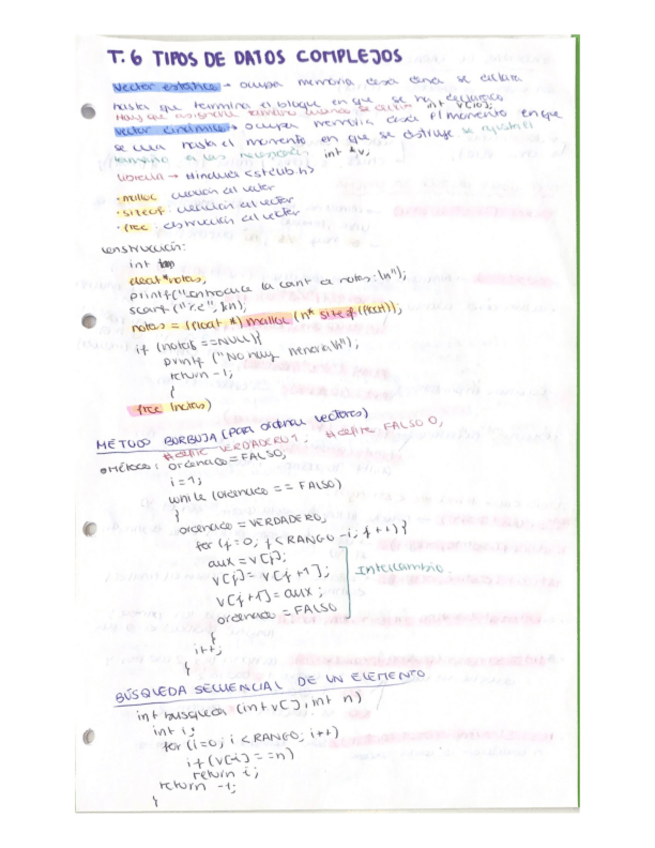 T.6 TIPOS DE DATOS COMPLEJOS
Vector estático → ocupa memoria desde que se declara
hasta que termina el bloque en que se ha declarado.
Hay que asignarle tamaño cuando se declara int v[10];
Vector dinámico → ocupa memoria desde el momento en que
se crea hasta el momento en que se destruye se ajusta el
tamaño a las necesidades int *v;
Librería → #include <stdlib.h>
· malloc creación del vector
· sizeof: creación del vector
· free: destrucción del vector
Construcción:
int
float *notas;
printf("Introduce la cant de notas: \n");
scanf("%d", &n);
notas = (float *) malloc (n* sizeof(float));
if (notas ==NULL){
printf ("No hay memoria\n");
return -1;
}
free (notas)
MÉTODO BURBUJA (para ordenar vectores)
#define VERDADERO 1; #define FALSO 0;
Método: ordenado = FALSO;
i = 1;
while (ordenado == FALSO)
{
ordenado = VERDADERO;
for (j=0; j<RANGO -i; j++){
aux = v[j];
v[j]= v[j+1];
Intercambio.
v[j+1]=aux;
ordenado = FALSO
}
i++;
}
BÚSQUEDA SECUENCIAL DE UN ELEMENTO
int busqueda (int v[], int n)
int i;
for (i=0; i<RANGO; i++)
if (v[i]==n)
return i;
return -1;
}